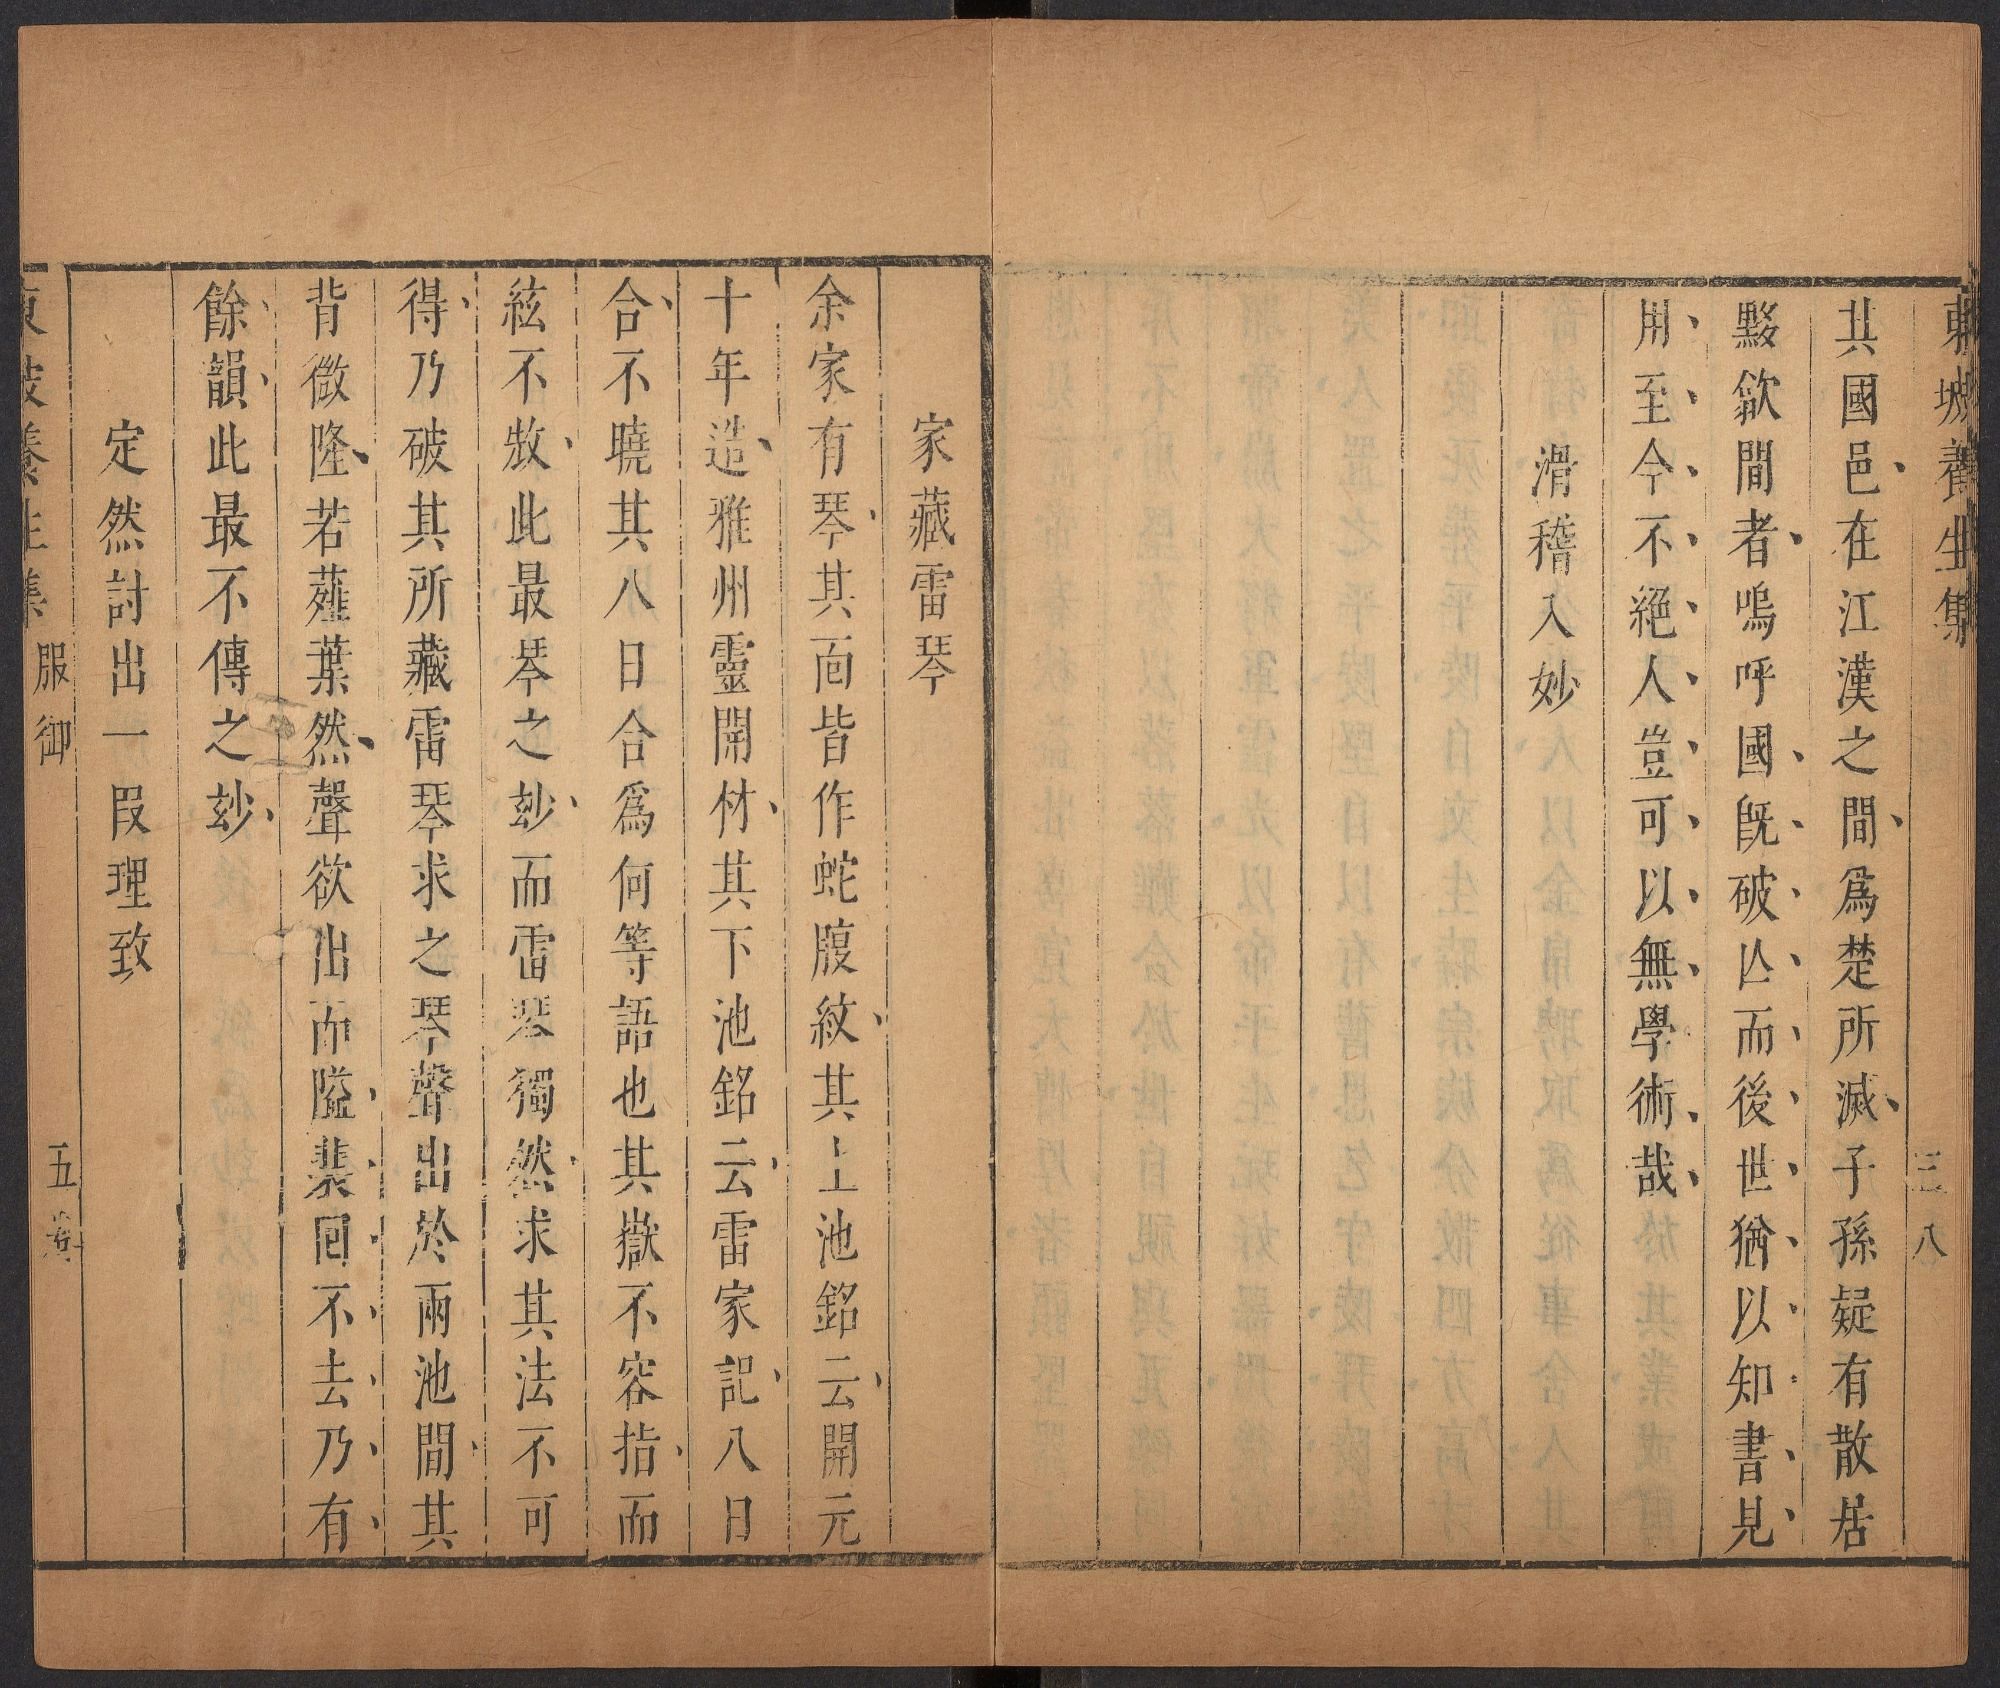 東坡養生集 三 八
其國邑在江漢之間爲楚所滅子孫疑有散居
黟歙間者嗚呼國旣破亾而後世猶以知書見
用至今不絕人豈可以無學術哉
滑稽入妙
家藏雷琴
余家有琴其面皆作蛇腹紋其上池銘云開元
十年造雅州靈開材其下池銘云雷家記八日
合不曉其八日合爲何等語也其嶽不容指而
絃不㪇此最琴之玅而雷琴獨然求其法不可
得乃破其所藏雷琴求之琴聲出於兩池間其
背微隆若薤葉然聲欲出而隘裴囘不去乃有
餘韻此最不傳之玅
定然討出一段理致
東坡養生集 服御 五